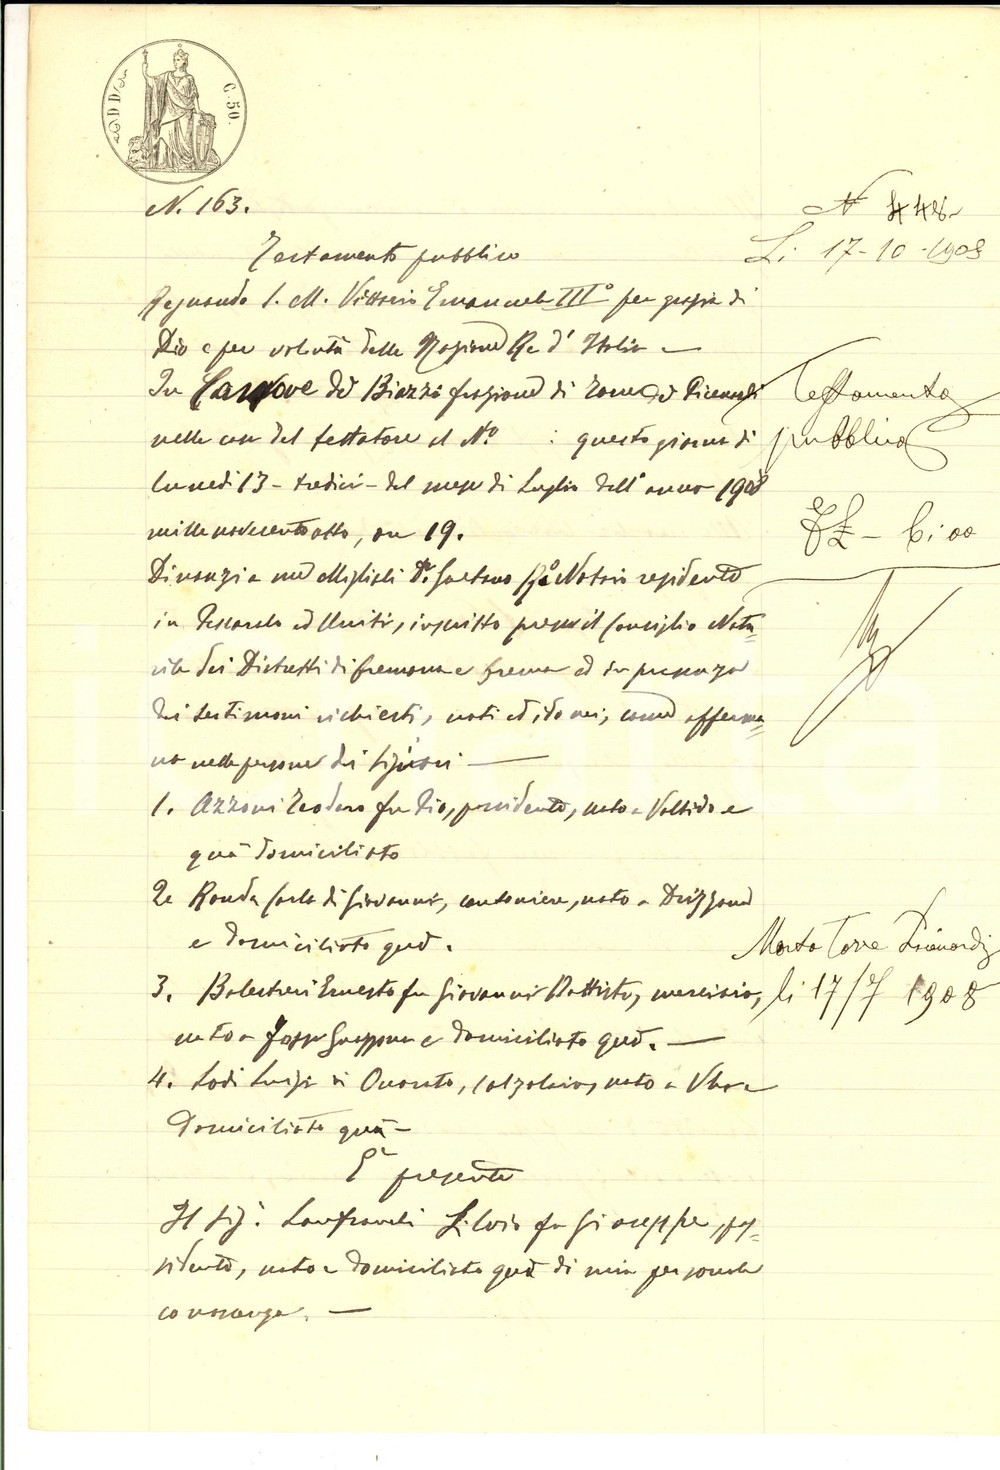 C. 50.
N. 163.
N 448
Li 17-10-1908
Testamento pubblico
Regnando S. M. Vittorio Emanuele III° per grazia di
Dio e per volontà della Nazione Re d'Italia —
In Canove de' Biazzi frazione di Torre de' Picenardi
nella casa del testatore al N.° : questo giorno di
lunedì 13 - tredici - del mese di Luglio dell'anno 1908
mille novecento otto, ore 19.
Dinanzi a me Miglioli Dr. Gaetano R.° Notaio residente
in Pescarolo ed Uniti, inscritto presso il Consiglio Nota=
rile dei Distretti di Cremona e Crema ed in presenza
dei testimoni richiesti, noti ed idonei, come afferma=
no nelle persone dei Signori —
1. Azzoni Teodoro fu Pio, possidente, nato a Voltido e
quà domiciliato
2. Ronda Carlo di Giovanni, cantoniere, nato a Drizzona
e domiciliato quà.
3. Balestrieri Ernesto fu Giovanni Battista, merciaio,
nato a e domiciliato quà. —
4. Lodi Luigi di Onorato, calzolaio, nato a e
domiciliato quà —
È presente
Il Sig.r Lanfranchi Silvio fu Giuseppe, pos=
sidente, nato e domiciliato quà di mia personale
conoscenza. —
Testamento
pubblico
Morto Torre Picenardi
li 17/7 1908